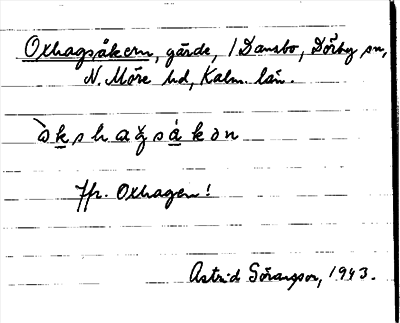 Oxhagsåkern, gärde, 1 Dansbo, Dörby sn,
N. Möre hd, Kalm. län.
òkshagsákən
Jfr. Oxhagen!
Astrid Göransson, 1943.